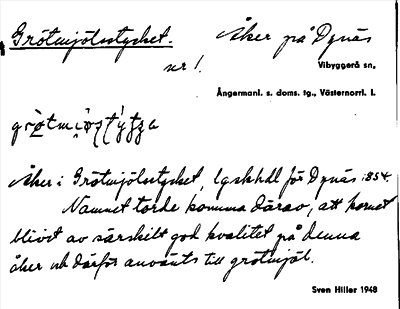 Grötmjölsstycket. Åker på Dynäs
nr 1. Vibyggerå sn,
Ångermanl. s. doms. tg., Västernorrl. l.
Åker i Grötmjölsstycket, lgskhdl för Dynäs 1854.
Namnet torde komma därav, att kornet
blivit av särskilt god kvalitet på denna
åker och därför använts till grötmjöl.
Sven Hiller 1948